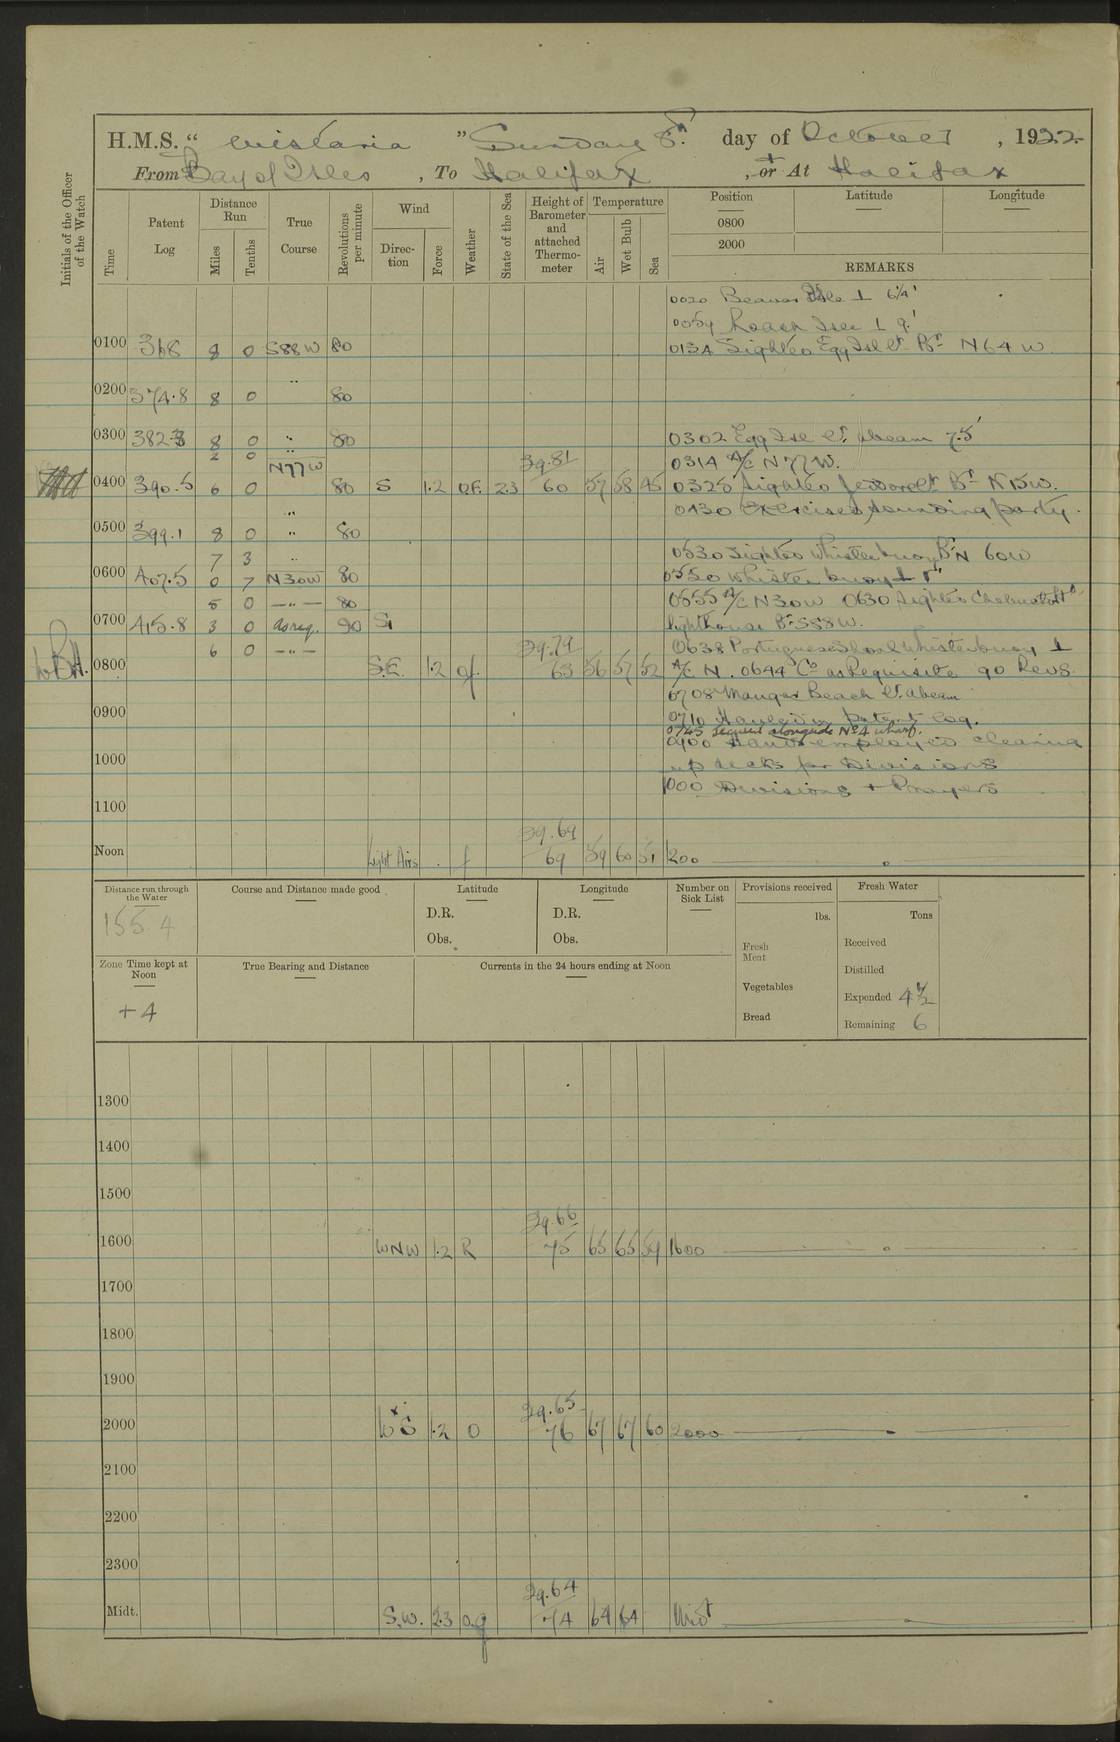 H.M.S. “ Wistaria ” Sunday 8th. day of October , 1922.
From Bay of Isles , To Halifax , or At Halifax
Initials of the Officer of the Watch
Time
Patent Log
Distance Run
Miles
Tenths
True Course
Revolutions per minute
Wind
Direction
Force
Weather
State of the Sea
Height of Barometer and attached Thermometer
Temperature
Air
Wet Bulb
Sea
Position Latitude Longitude
0800
2000
REMARKS
0020 Beaver Isle ⊥ 6¼'
0054 Roach Isle ⊥ 9.'
0100 368 8 0 S88W 80 0134 Sighted Egg Isle Lt. Bg. N64W
0200 374.8 8 0 " 80
0300 382.3 8 0 " 80 0302 Egg Isle Lt. abeam 7.5'
2 0 " 29.81 0314 A/C N77W.
N77W
0400 390.5 6 0 80 S 1.2 23 60 57 58 45 0325 Sighted Lt. Bg. N15W.
0430 Exercised sounding party.
0500 399.1 8 0 " 80
7 3 " 0530 Sighted whistle buoy Bg. N 60W
0600 407.5 0 7 N30W 80 0550 Whistle buoy ⊥
5 0 —"— 80 0555 A/C N30W 0630 Sighted
0700 415.8 3 0 as req. 90 lighthouse Bg. S58W.
6 0 —"— 29.79 0638 Portuguese Shoal Whistle buoy ⊥
0800 S.E. 1.2 63 56 57 52 A/C N. 0644 Co. as Requisite 90 Revs
0708 Maugar Beach Lt. abeam
0900 0710 Hauled in patent log.
0745 Secured alongside No 4 wharf.
0900 Hands employed cleaning
1000 up decks for Divisions
1000 Divisions + Prayers
1100
29.69
Noon Light Airs . f 69 59 60 51 1200
Distance run through the Water
155.4
Course and Distance made good
Latitude
D.R.
Obs.
Longitude
D.R.
Obs.
Number on Sick List
Provisions received
lbs.
Fresh Meat
Vegetables
Bread
Fresh Water
Tons
Received
Distilled
Expended 4½
Remaining 6
Zone Time kept at Noon
+4
True Bearing and Distance
Currents in the 24 hours ending at Noon
1300
1400
1500
29.66
1600 WNW 1.2 R 75 65 65 59 1600
1700
1800
1900
29.65
2000 WxS 1.2 O 76 67 67 60 2000
2100
2200
2300
29.64
Midt. S.W. 2.3 og 74 64 64 Midt